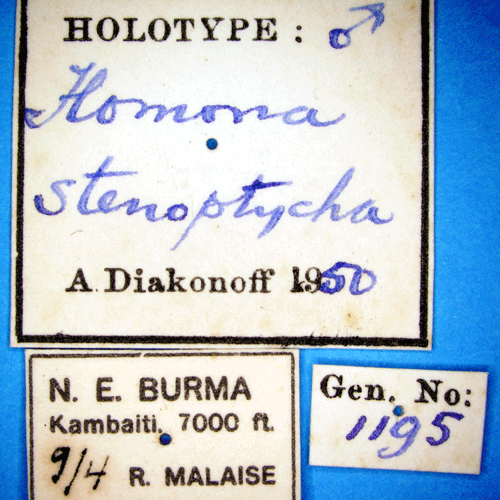 HOLOTYPE : ♂
Homona
stenoptycha
A. Diakonoff 1950
N. E. BURMA
Kambaiti. 7000 ft.
9/4 R. MALAISE
Gen. No:
1195